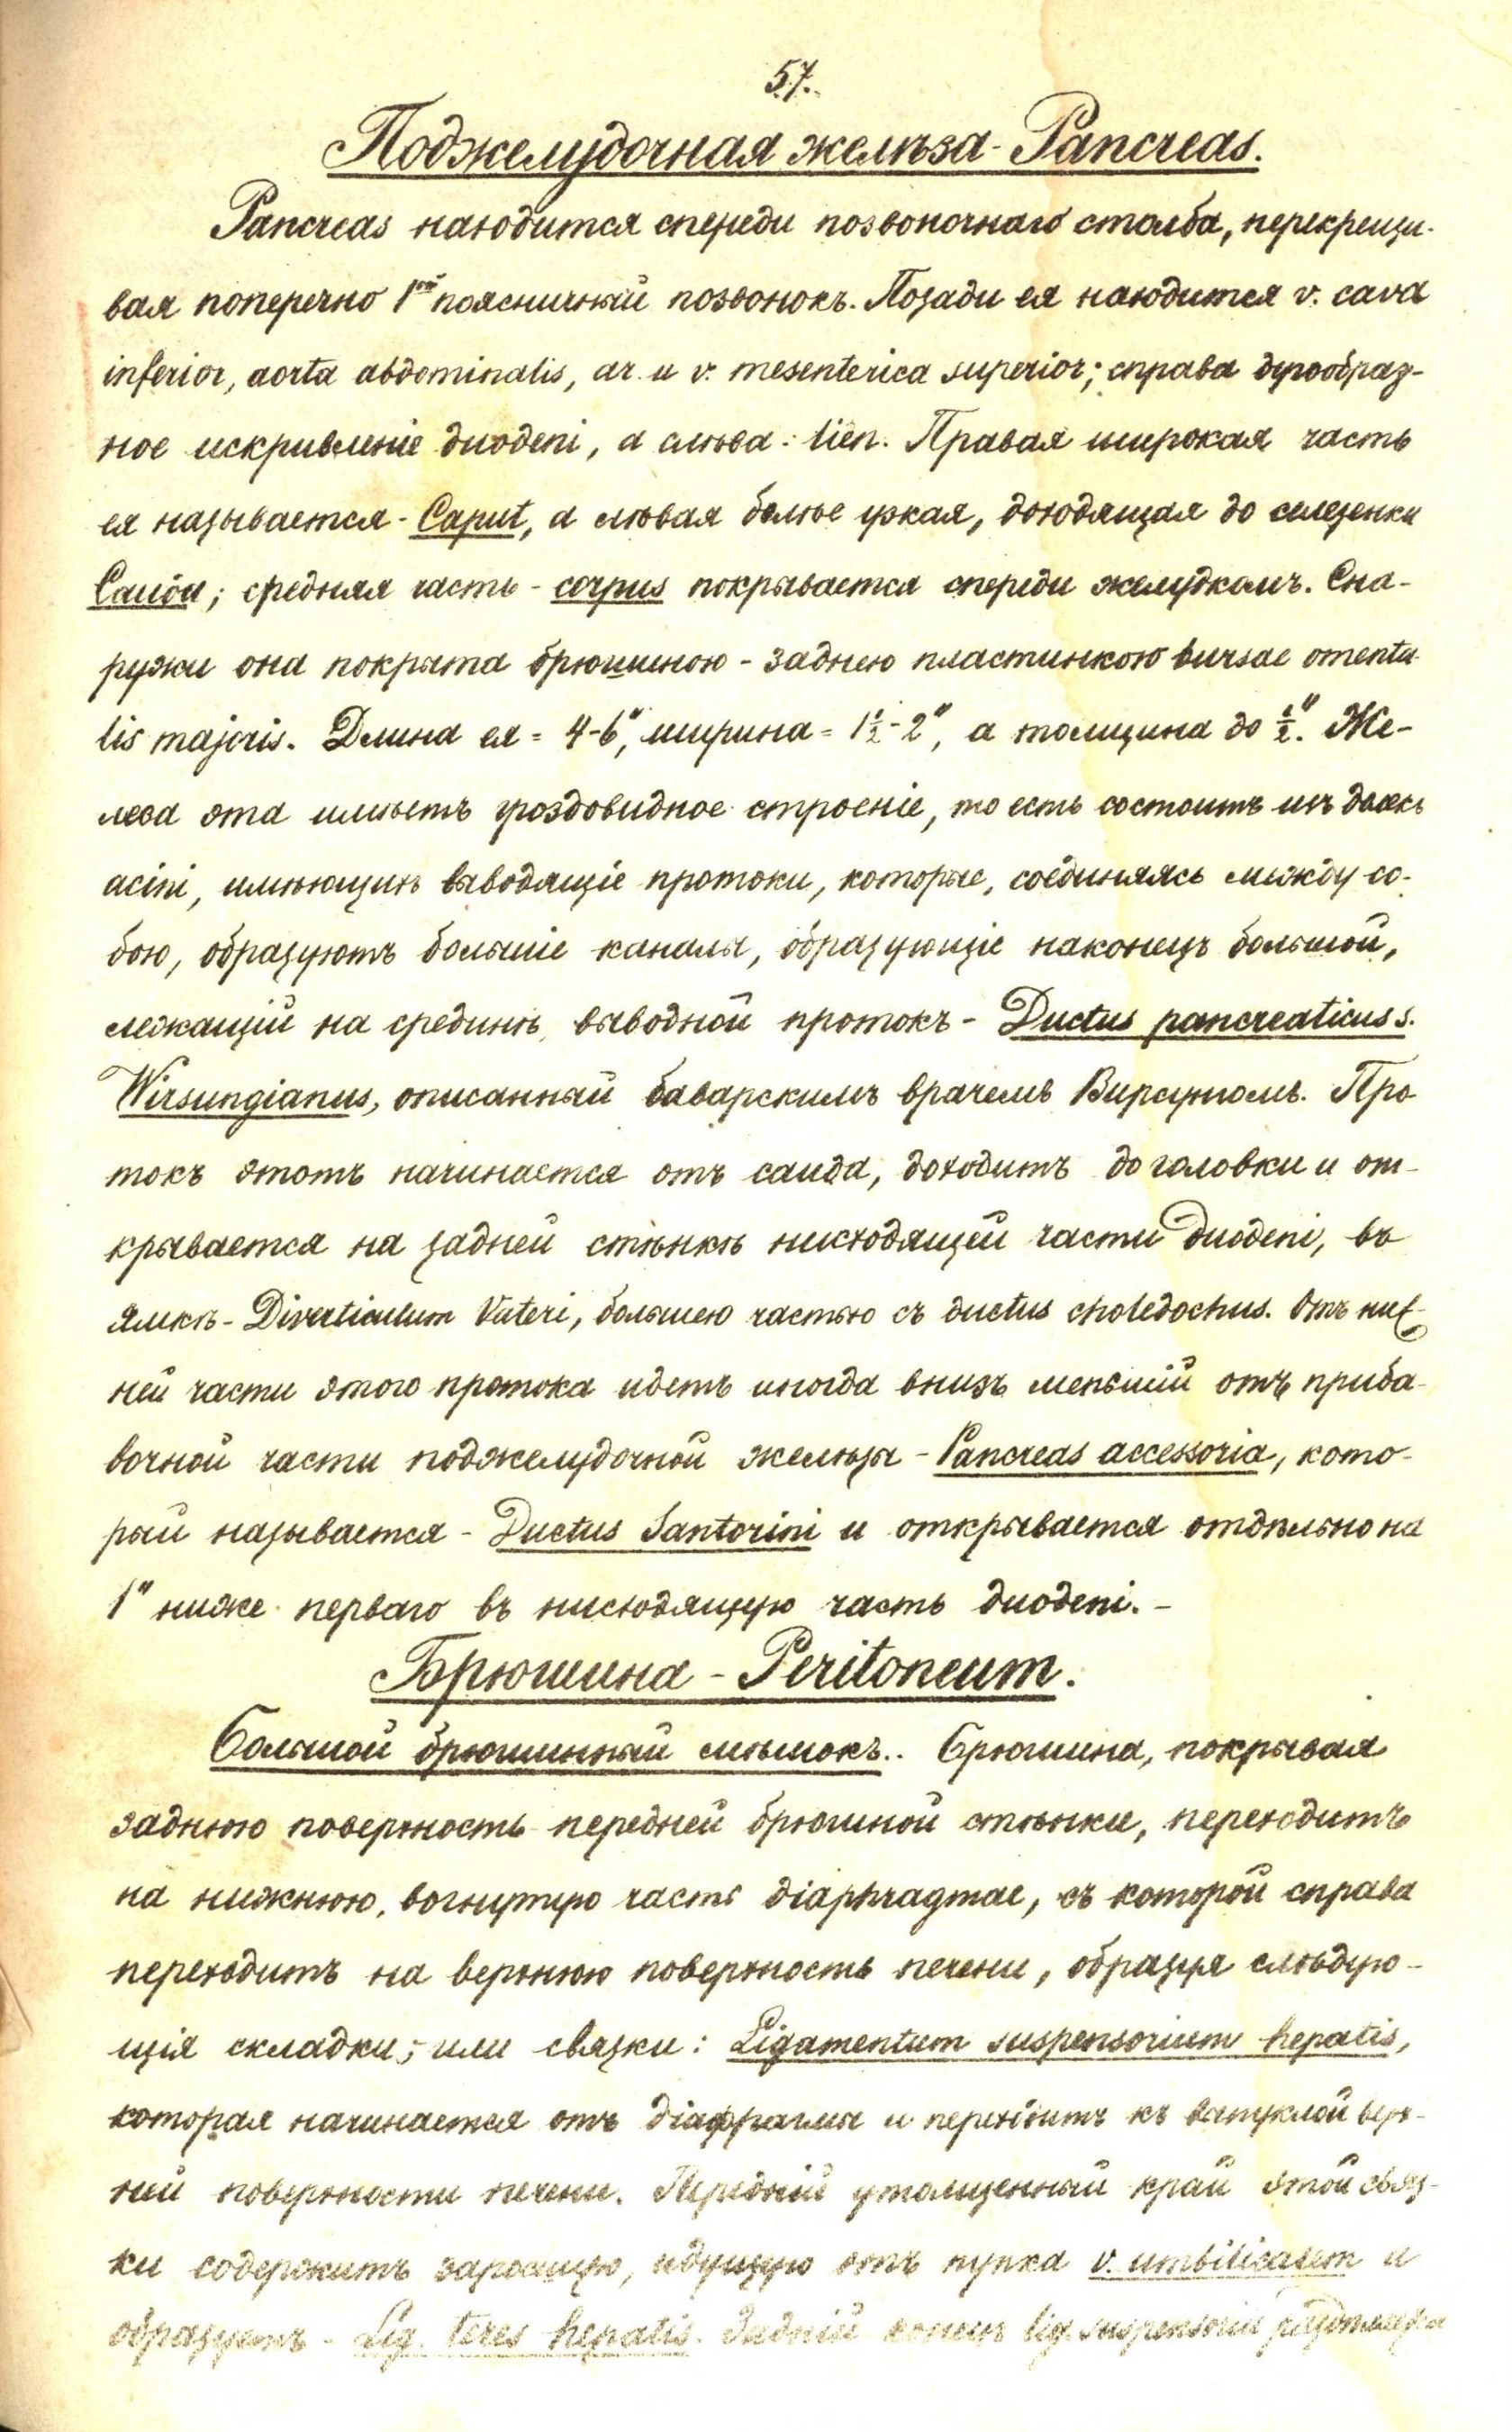 57.
Поджелудочная желѣза - Pancreas.
Pancreas находится спереди позвоночнаго столба, перекрещи-
вая поперечно 1ый поясничный позвонокъ. Позади ея находится v. cava
inferior, aorta abdominalis, ar. и v. mesenterica superior; справа дугообраз-
ное искривленіе duodeni, а слѣва - lien. Правая широкая часть
ея называется - Caput, а лѣвая болѣе узкая, доходящая до селезенки
Cauda; средняя часть - corpus покрывается спереди желудкомъ. Сна-
ружи она покрыта брюшиною - заднею пластинкою bursae omenta-
lis majoris. Длина ея = 4-6", ширина = 1½-2", а толщина до ½". Же-
леза эта имѣетъ гроздовидное строеніе, то есть состоитъ изъ долекъ
acini, имѣющихъ выводящіе протоки, которые, соединяясь между со-
бою, образуютъ большіе каналы, образующіе наконецъ большой,
лежащій на срединѣ, выводной протокъ - Ductus pancreaticus s.
Wirsungianus, описанный баварскимъ врачемъ Вирсунгомъ. Про-
токъ этотъ начинается отъ cauda, доходитъ до головки и от-
крывается на задней стѣнкѣ нисходящей части duodeni, въ
ямкѣ - Diverticulum Vateri, большею частью съ ductus choledochus. Отъ ниж-
ней части этого протока идетъ иногда внизъ меньшій отъ приба-
вочной части поджелудочной желѣзы - Pancreas accessoria, кото-
рый называется - Ductus Santorini и открывается отдѣльно на
1" ниже перваго въ нисходящую часть duodeni. -
Брюшина - Peritoneum.
Большой брюшинный мѣшокъ.. Брюшина, покрывая
заднюю поверхность передней брюшной стѣнки, переходитъ
на нижнюю, вогнутую часть diaphragmae, съ которой справа
переходитъ на верхнюю поверхность печени, образуя слѣдую-
щія складки; или связки: Ligamentum suspensorium hepatis,
которая начинается отъ діафрагмы и переходитъ къ выпуклой верх-
ней поверхности печени. Передній утолщенный край этой связ-
ки содержитъ заросшую, идущую отъ пупка v. umbilicalem и
образуетъ - Lig. teres hepatis. Задній конецъ lig. suspensorii